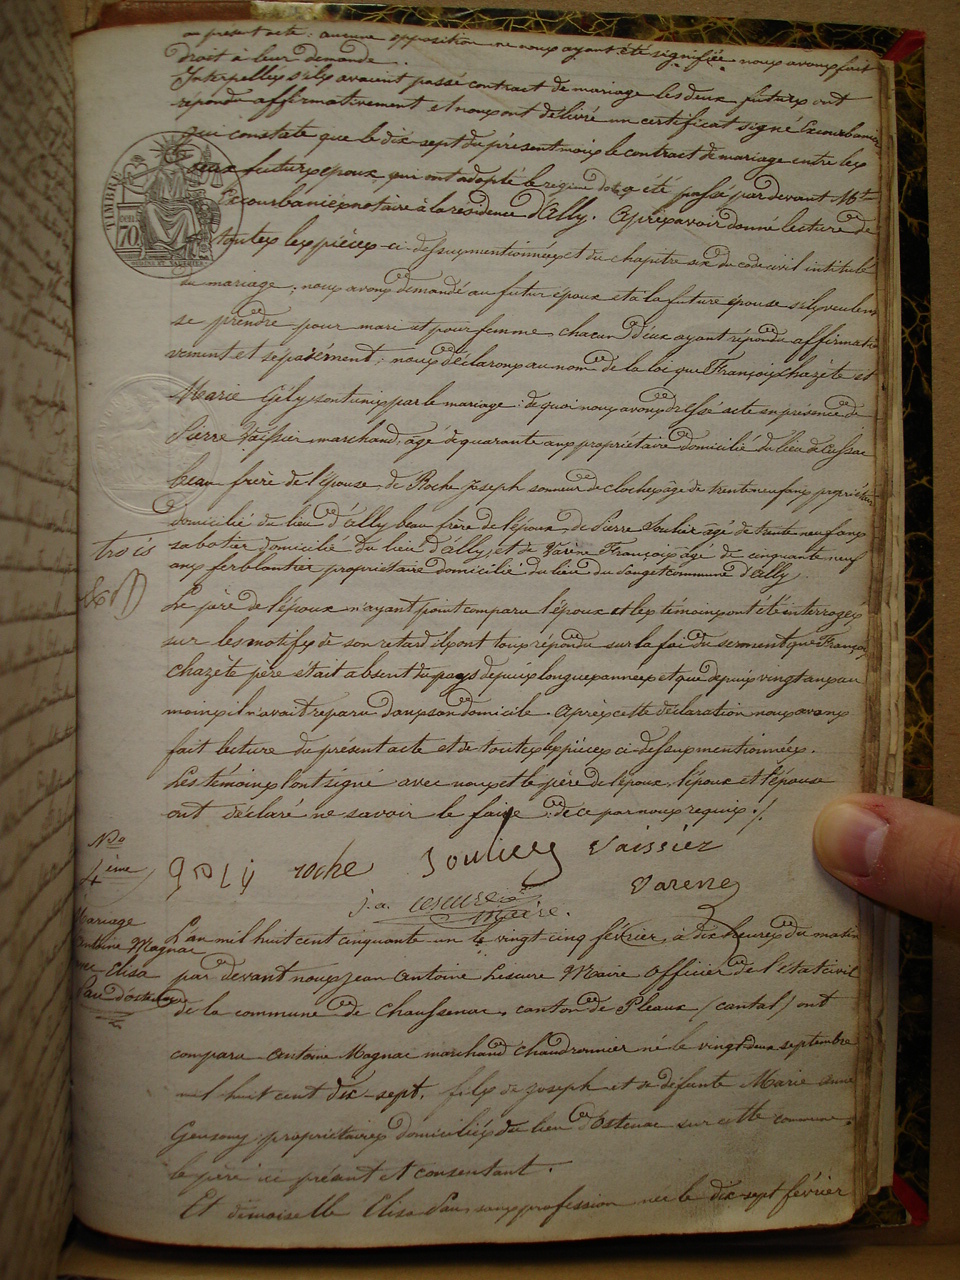 au présent acte : aucune opposition ne nous ayant été signifiée nous avons fait
droit à leur demande.
Interpellés s'ils avaient passé contract de mariage les deux futurs ont
répondu affirmativement et nous ont délivré un certificat signé Escourbaniex
qui constate que le dix sept du présent mois le contract de mariage entre les
deux futurs époux qui ont adopté le régime dotal a été passé par devant Mtre
Escourbaniex notaire à la résidence d'Ally. Après avoir donné lecture de
toutes les pièces ci-dessus mentionnées et du chapitre six du code civil intitulé
du mariage, nous avons demandé au futur époux et à la future épouse s'ils veulent
se prendre pour mari et pour femme chacun d'eux ayant répondu affirmati
vement et séparément ; nous déclarons au nom de la loi que François Chazète et
Marie Gély sont unis par le mariage : de quoi nous avons dressé acte en présence de
Pierre Vaissier marchand, âgé de quarante ans propriétaire domicilié du lieu de Cussac
beau frère de l'épouse, de Roche Joseph sonneur de cloches âgé de trente neuf ans propriétaire
domicilié du lieu d'Ally beau frère de l'époux, de Pierre Soulier âgé de trente neuf ans
sabotier domicilié du lieu d'Ally, et de Varène François âgé de cinquante neuf
ans ferblantier propriétaire domicilié du lieu du commune d'Ally.
Le père de l'époux n'ayant point comparu l'époux et les témoins ont été interrogés
sur les motifs de son retard ils ont tous répondu sur la foi du serment que François
Chazète père était absent du pays depuis longues années et que depuis vingt ans au
moins il n'avait reparu dans son domicile. Après cette déclaration nous avons
fait lecture du présent acte et de toutes les pièces ci-dessus mentionnées.
Les témoins l'ont signé avec nous et le père de l'époux, l'époux et l'épouse
ont déclaré ne savoir le faire de ce par nous requis ./.
gely roche Soulier Vaissiez
j. a. Lescure Varene
Maire.
TIMBRE
70
trois
No
4ème
Mariage
Antoine Magnac
avec Elisa
Pau d'ostenac
L'an mil huit cent cinquante un le vingt cinq février, à dix heures du matin
par devant nous Jean Antoine Lescure Maire officier de l'état civil
de la commune de Chaussenac, canton de Pleaux (cantal) ont
comparu Antoine Magnac marchand chaudronnier né le vingt deux septembre
mil huit cent dix-sept, fils de Joseph et de défunte Marie anne
propriétaires domiciliés du lieu d'ostenac sur cette commune,
le père ici présent et consentant.
Et demoiselle Elisa Pau, sans profession née le dix-sept février